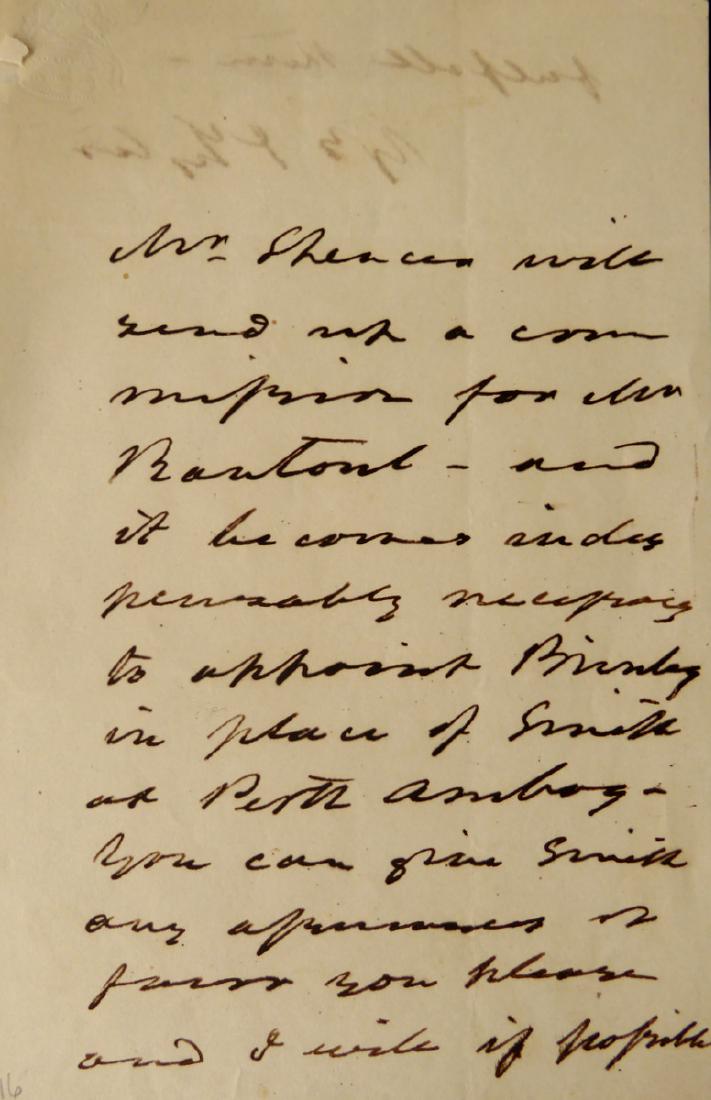 Mr. Spencer will
send up a com
mission for Mr
Rantoul - and
it becomes indis
pensably necessary
to appoint Brinley
in place of Smith
at Perth Amboy -
You can give Smith
any assurances of
favor you please
and I will if possible